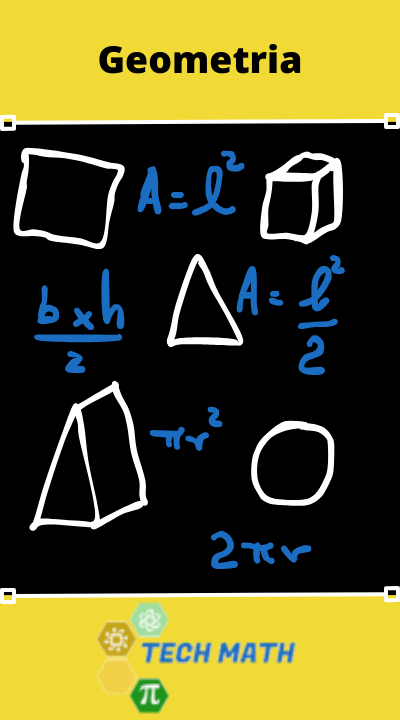 Geometria
A = l²
b x h
2
A = l²
2
πr²
2πr
π
TECH MATH